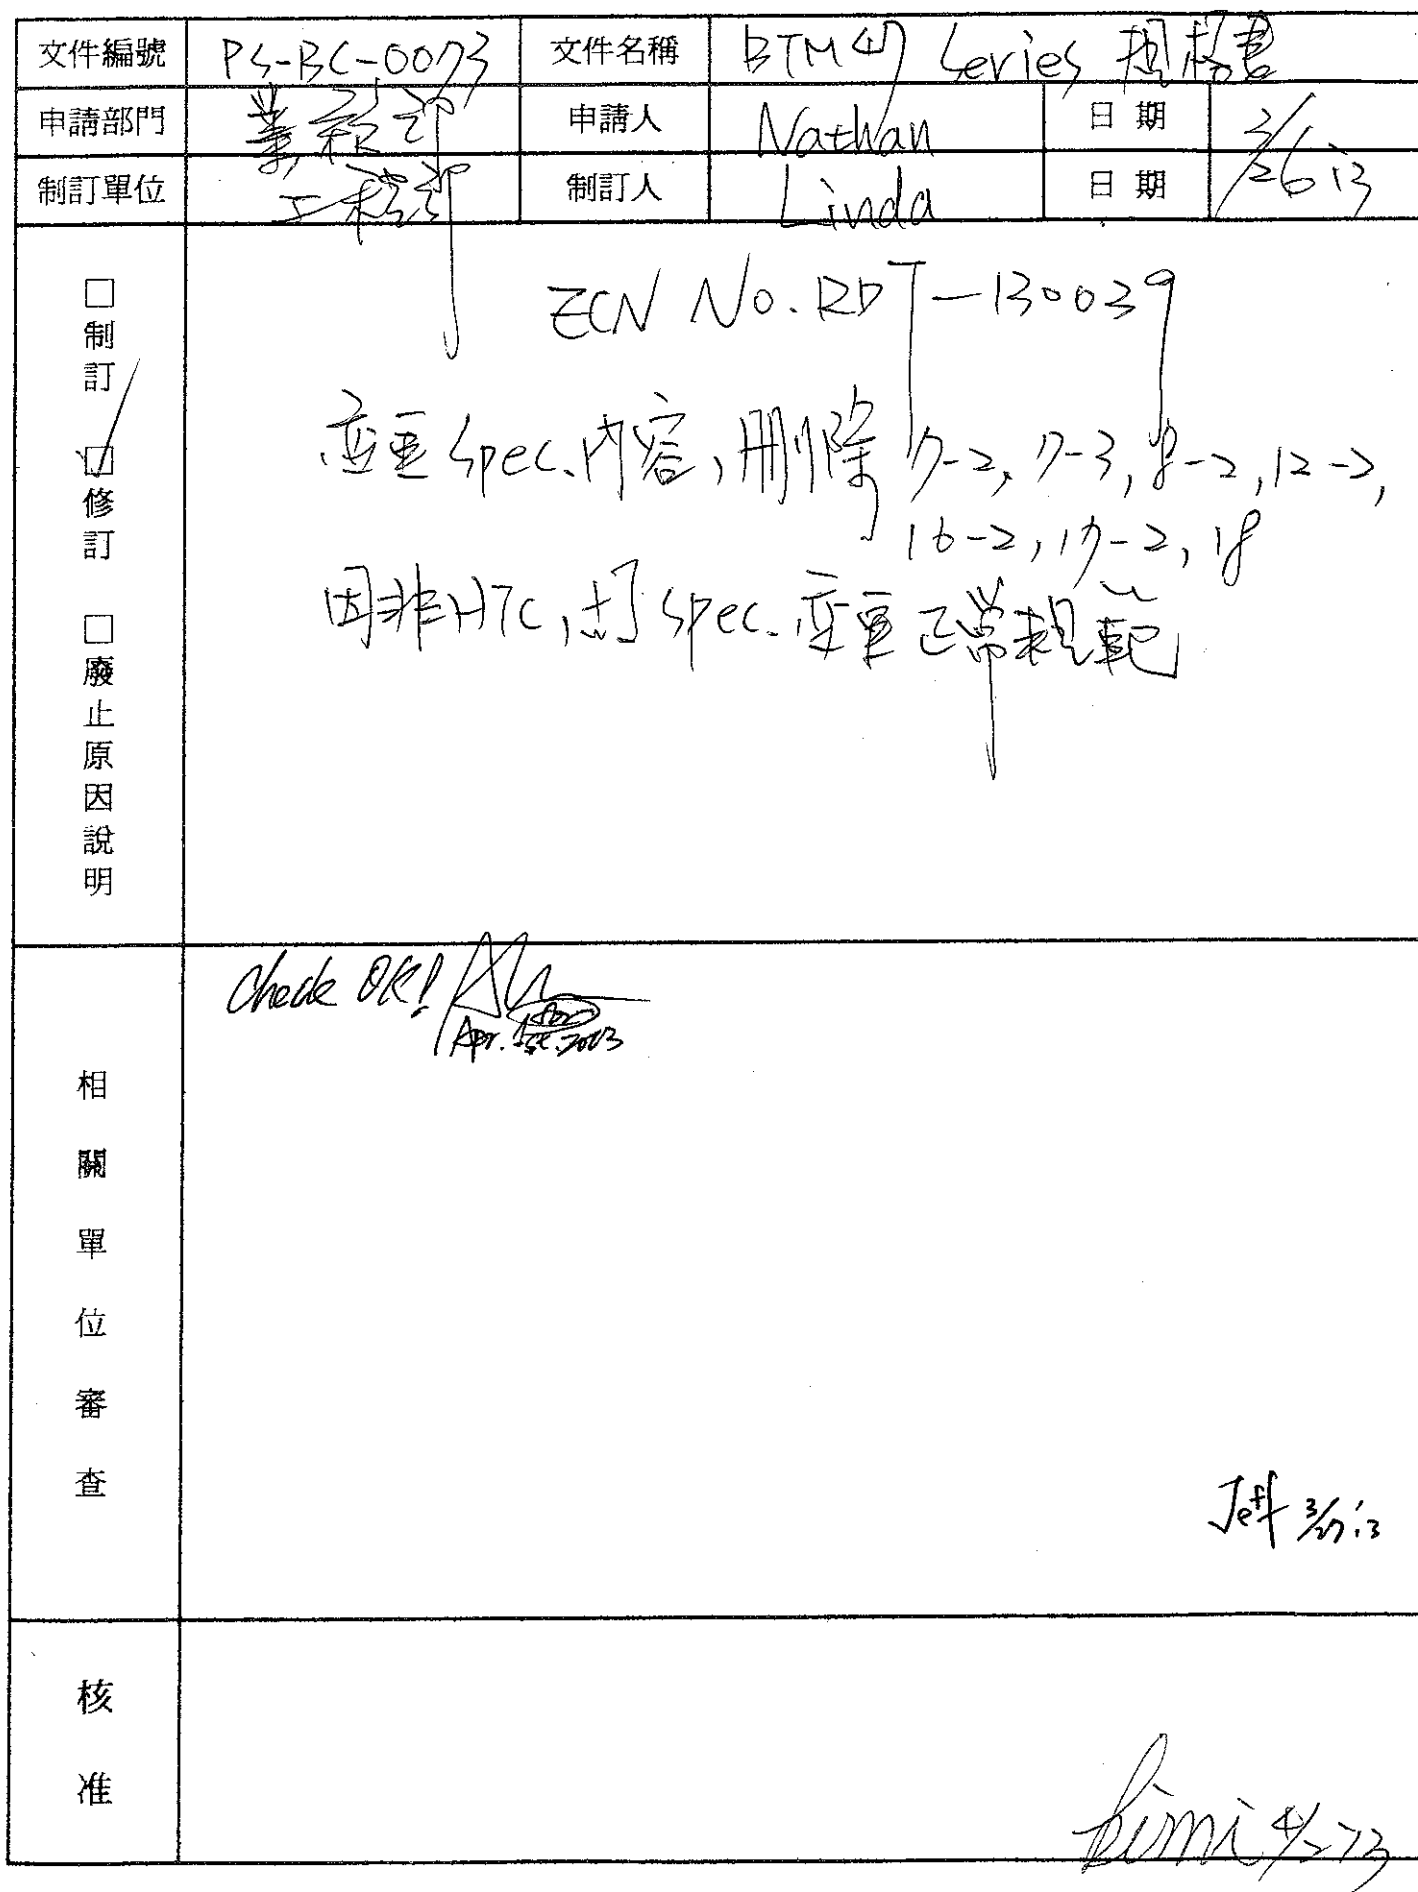 文件編號 PS-BC-0073 文件名稱 BTM47 Series 規格書
申請部門 業務部 申請人 Nathan 日期 3/26'13
制訂單位 工程部 制訂人 Linda 日期
□制訂 ☑修訂 □廢止原因說明
ECN No. RDT-130039
变更 Spec. 内容, 刪除 7-2, 7-3, 8-2, 12-2,
16-2, 17-2, 18
因非HTC, 故 Spec. 变更正常規範
相關單位審查
Check OK!
Apr. 1st. 2013
Jeff 3/27'13
核准